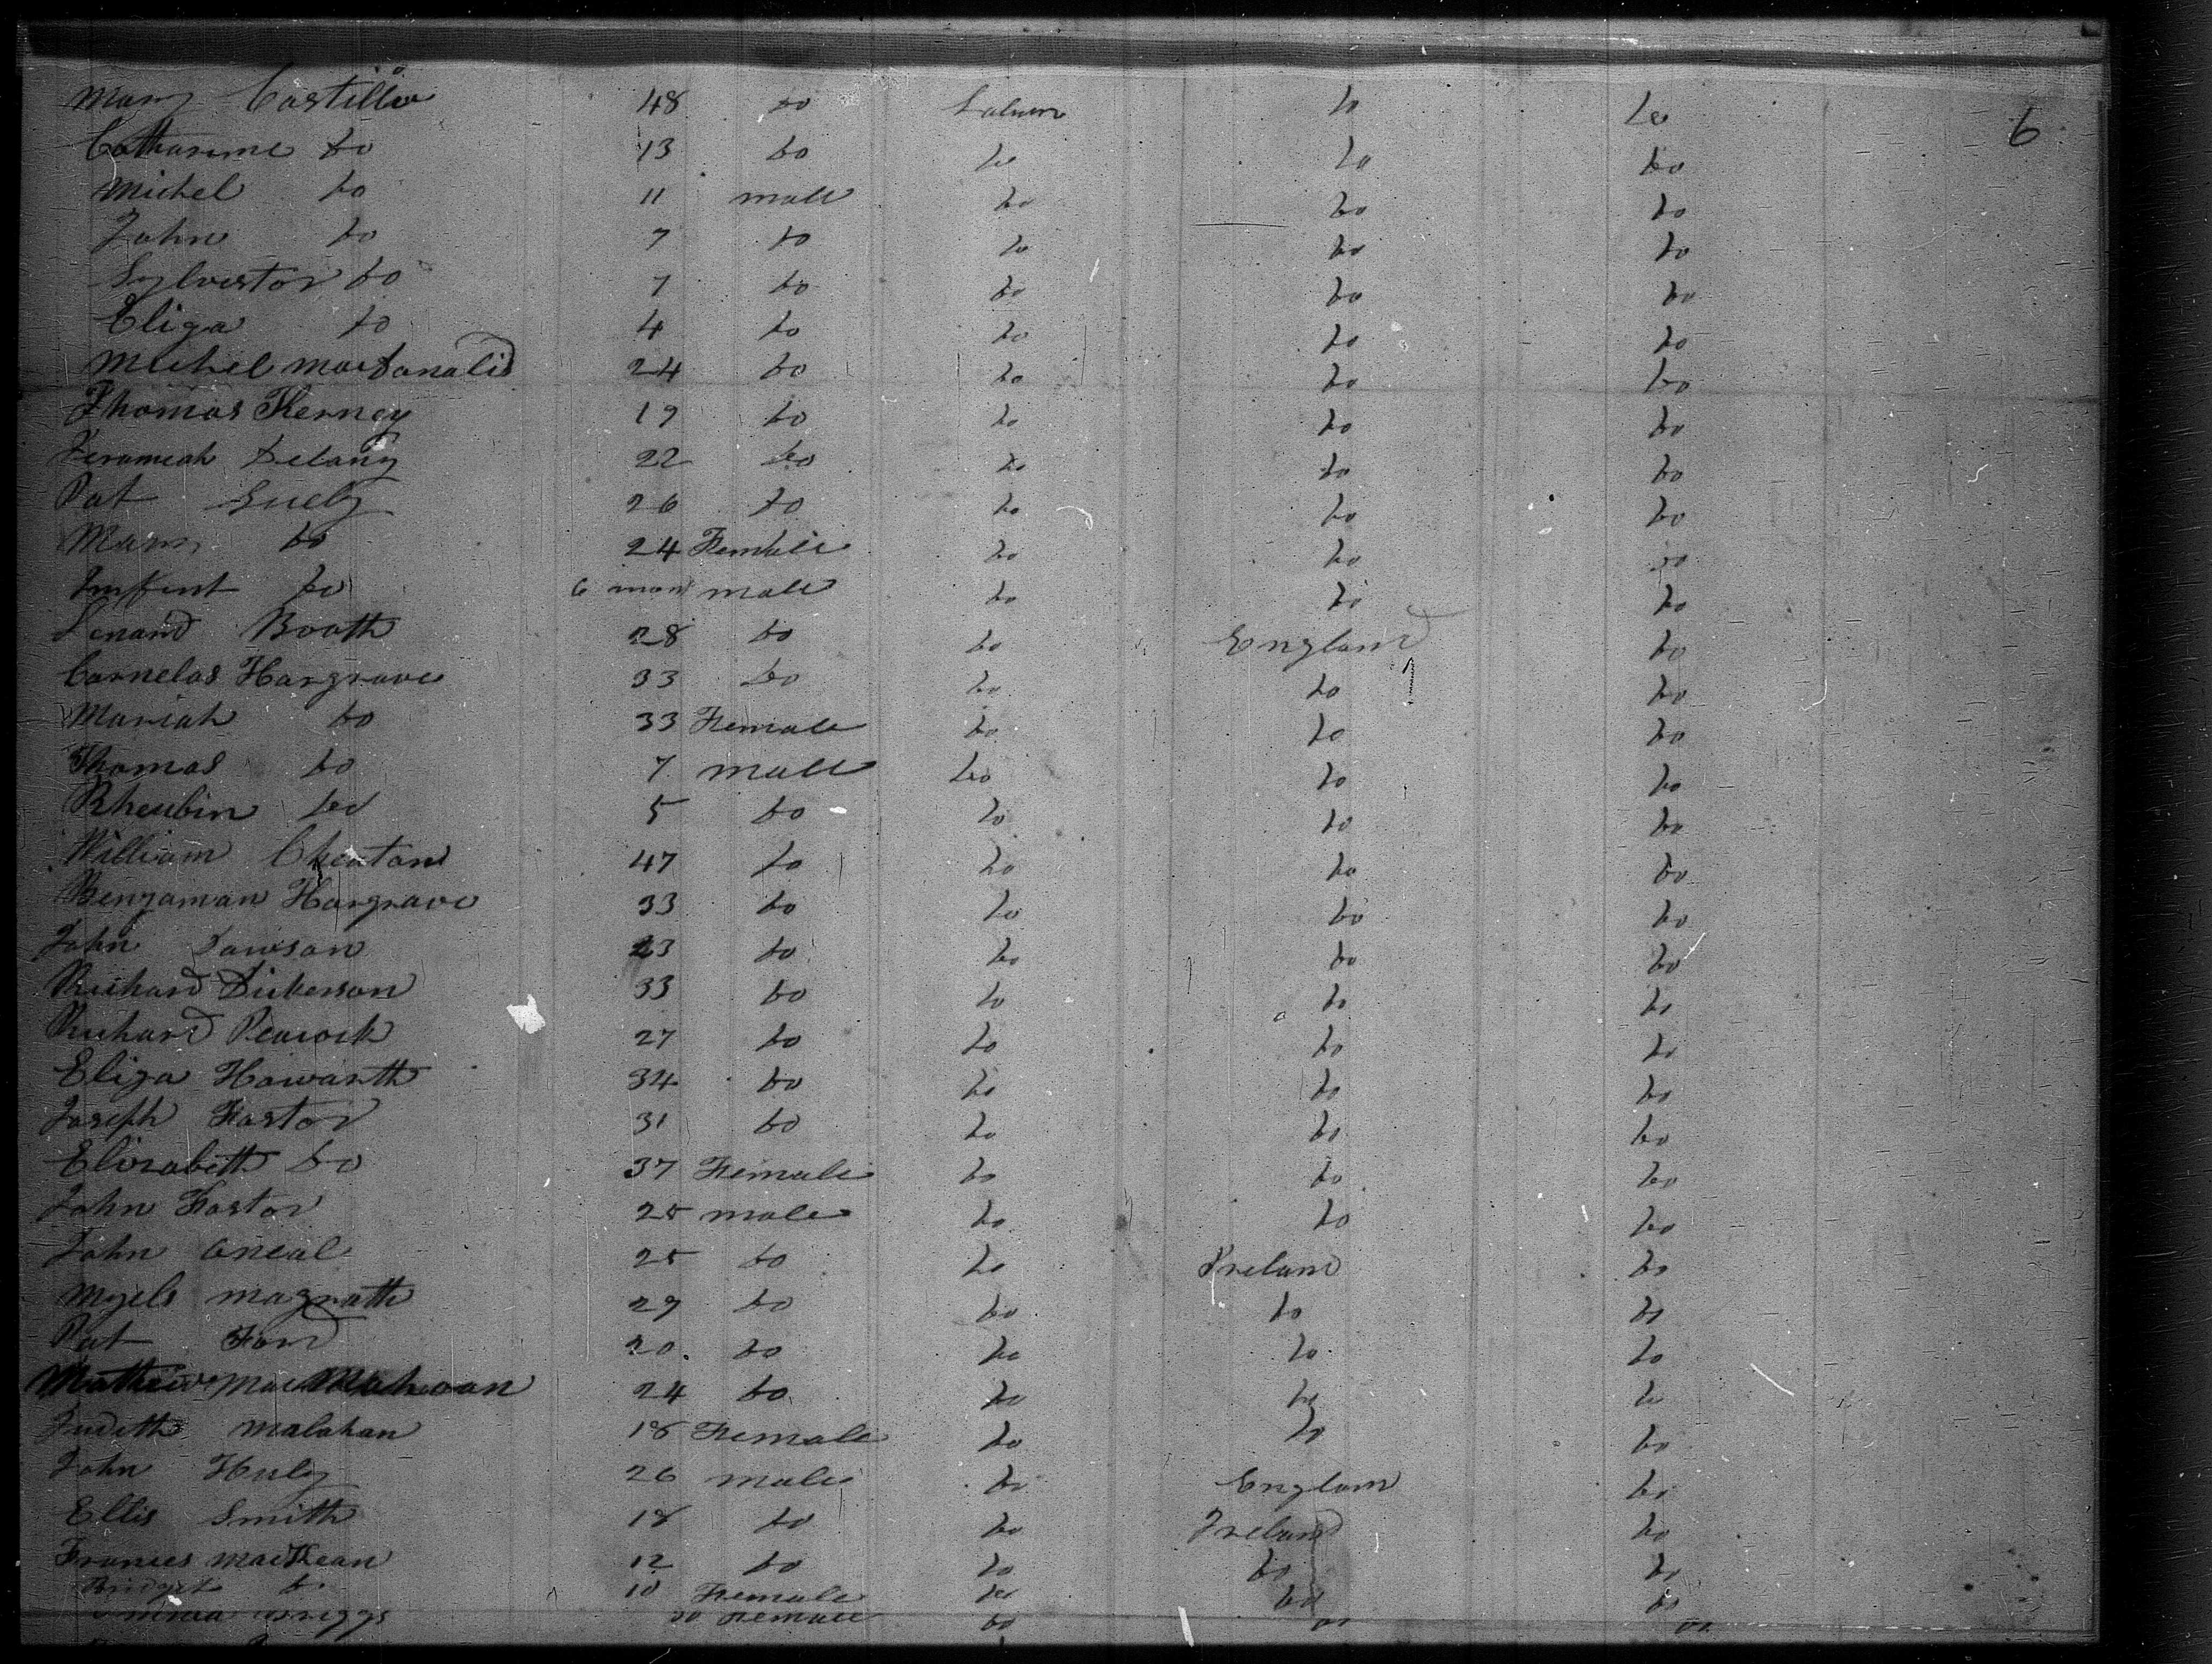 Mary Costillo 48 do Labuer do do 6
Catharine do 13 do do do do
Michel do 11 male do do do
John do 7 do do do do
Sylvestor do 7 do do do do
Eliza do 4 do do do do
Michel 24 do do do do
Thomas Kerney 19 do do do do
Jeramiah Delany 22 do do do do
Pat 26 do do do do
Mary do 24 Female do do do
Inffent do 6 male do do do
Lenard Booth 28 do do England do
Cornelas Hargrave 33 do do do do
Mariah do 33 Female do do do
Thomas do 7 male do do do
Rheubin do 5 do do do do
William Cheaton 47 do do do do
Benjaman Hargrave 33 do do do do
John Dawson 23 do do do do
Richard Dickerson 33 do do do do
Richard Peacock 27 do do do do
Eliza Howarth 34 do do do do
Joseph Fostor 31 do do do do
Elizabeth do 37 Female do do do
John Fostor 25 male do do do
John Oneal 25 do do Ireland do
Myels Magrath 29 do do do do
Pat Ford 20 do do do do
Mathew 24 do do do do
Judith Malahan 18 Female do do do
John Huly 26 male do England do
Ellis Smith 18 do do Ireland do
Frances 12 do do do do
Bridget do 10 Female do do do
Briggs Female do do do